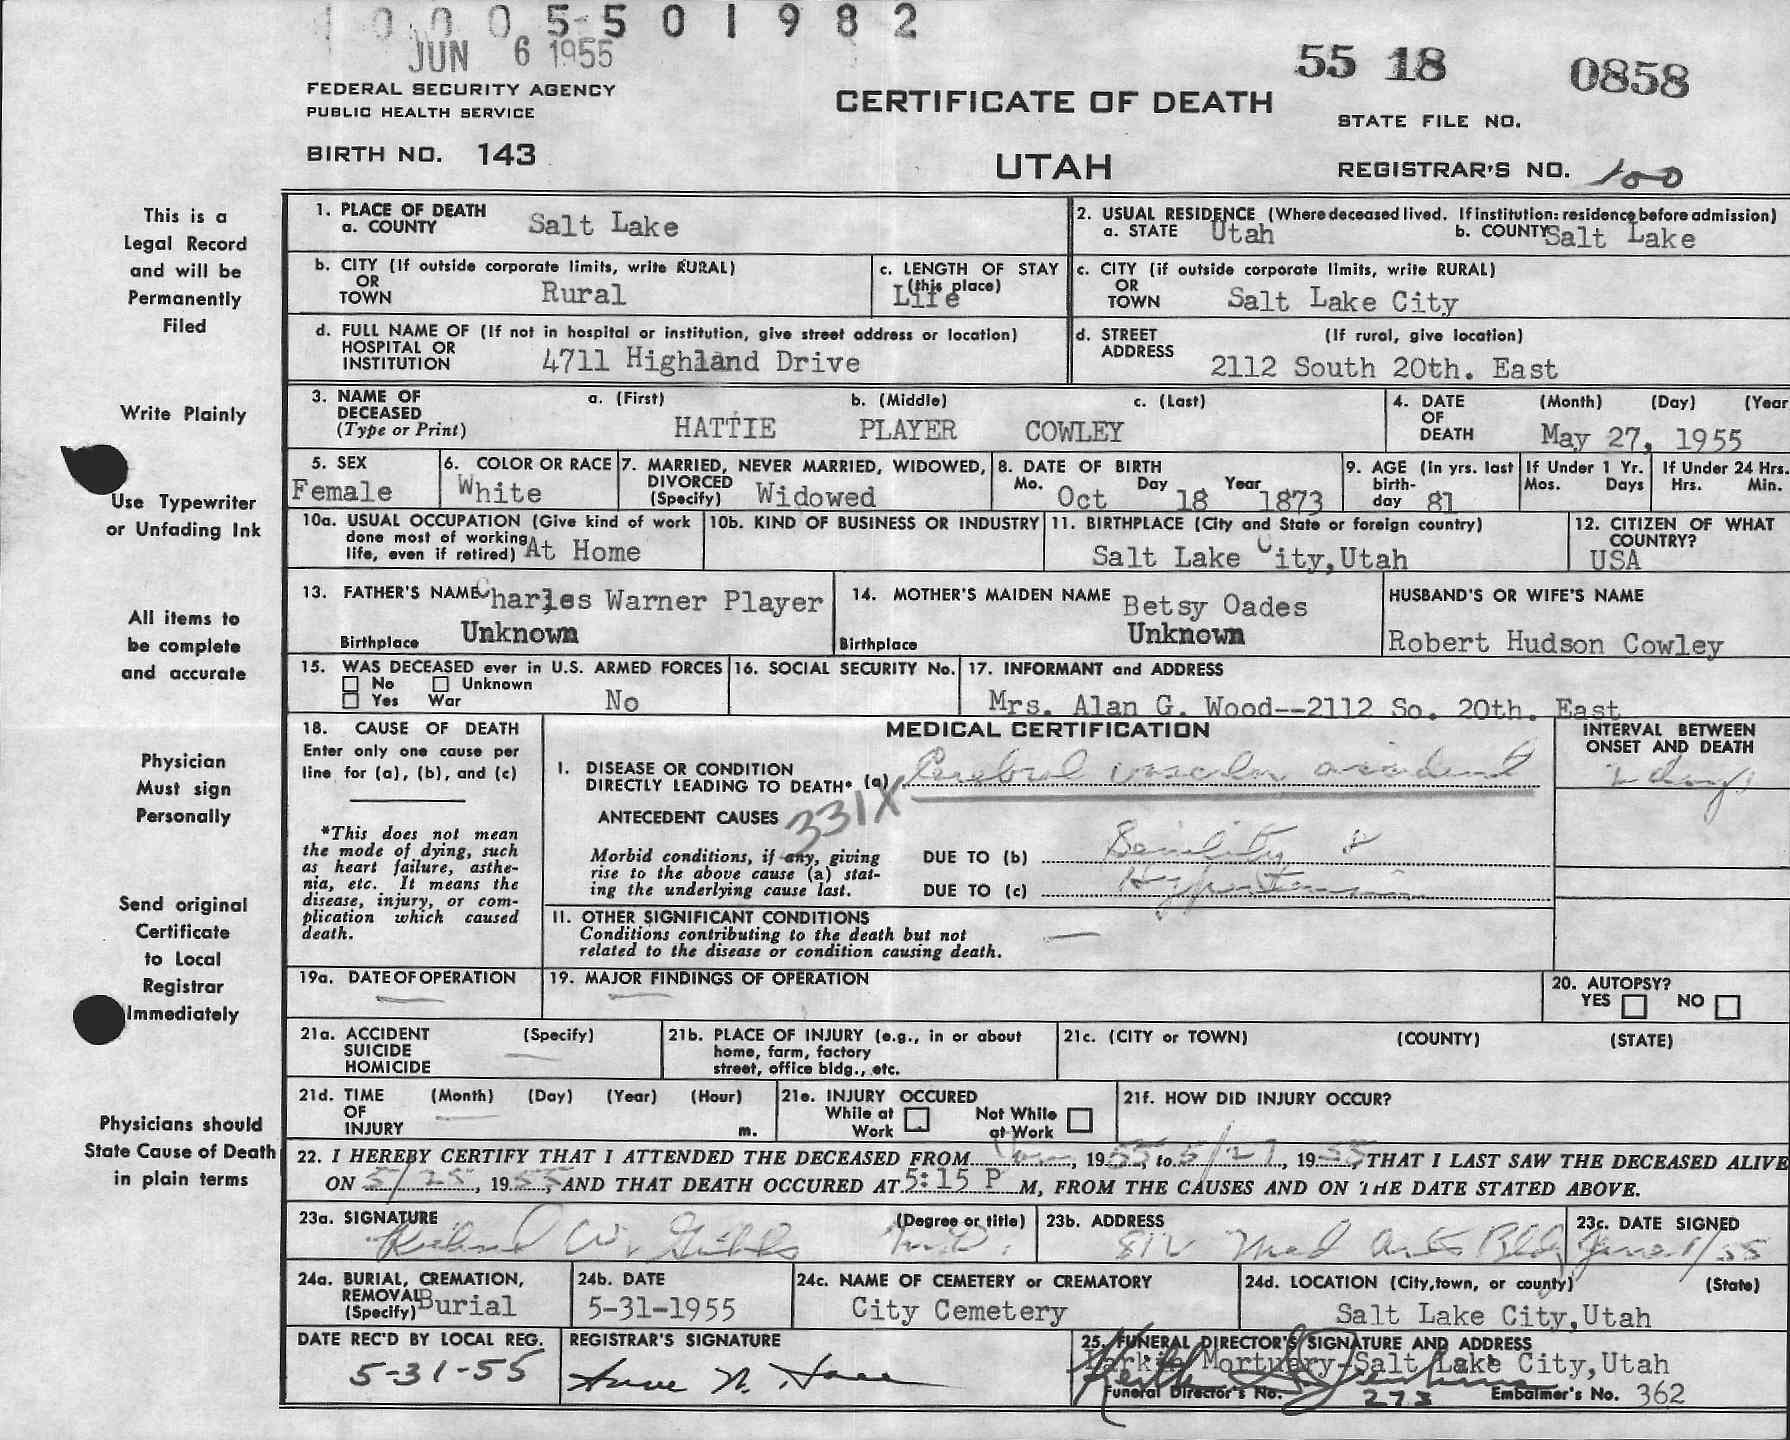 1 0 0 0 5 5 0 1 9 8 2
JUN 6 1955
55 18 0858
FEDERAL SECURITY AGENCY
PUBLIC HEALTH SERVICE
CERTIFICATE OF DEATH
STATE FILE NO.
BIRTH NO. 143
UTAH
REGISTRAR'S NO. 100
This is a
Legal Record
and will be
Permanently
Filed
Write Plainly
Use Typewriter
or Unfading Ink
All items to
be complete
and accurate
Physician
Must sign
Personally
Send original
Certificate
to Local
Registrar
Immediately
Physicians should
State Cause of Death
in plain terms
1. PLACE OF DEATH
a. COUNTY Salt Lake
2. USUAL RESIDENCE (Where deceased lived. If institution: residence before admission)
a. STATE Utah b. COUNTY Salt Lake
b. CITY (If outside corporate limits, write RURAL)
OR
TOWN Rural
c. LENGTH OF STAY
(this place)
Life
c. CITY (if outside corporate limits, write RURAL)
OR
TOWN Salt Lake City
d. FULL NAME OF (If not in hospital or institution, give street address or location)
HOSPITAL OR
INSTITUTION 4711 Highland Drive
d. STREET (If rural, give location)
ADDRESS
2112 South 20th. East
3. NAME OF a. (First) b. (Middle) c. (Last)
DECEASED
(Type or Print) HATTIE PLAYER COWLEY
4. DATE (Month) (Day) (Year
OF
DEATH May 27, 1955
5. SEX
Female
6. COLOR OR RACE
White
7. MARRIED, NEVER MARRIED, WIDOWED,
DIVORCED
(Specify) Widowed
8. DATE OF BIRTH
Mo. Oct Day 18 Year 1873
9. AGE (In yrs. last
birth-
day 81
If Under 1 Yr.
Mos. Days
If Under 24 Hrs.
Hrs. Min.
10a. USUAL OCCUPATION (Give kind of work
done most of working
life, even if retired) At Home
10b. KIND OF BUSINESS OR INDUSTRY
11. BIRTHPLACE (City and State or foreign country)
Salt Lake City, Utah
12. CITIZEN OF WHAT
COUNTRY?
USA
13. FATHER'S NAME Charles Warner Player
Birthplace Unknown
14. MOTHER'S MAIDEN NAME Betsy Oades
Birthplace Unknown
HUSBAND'S OR WIFE'S NAME
Robert Hudson Cowley
15. WAS DECEASED ever in U.S. ARMED FORCES
No Unknown
Yes War No
16. SOCIAL SECURITY No.
17. INFORMANT and ADDRESS
Mrs. Alan G. Wood--2112 So. 20th. East
18. CAUSE OF DEATH
Enter only one cause per
line for (a), (b), and (c)
*This does not mean
the mode of dying, such
as heart failure, asthe-
nia, etc. It means the
disease, injury, or com-
plication which caused
death.
MEDICAL CERTIFICATION
INTERVAL BETWEEN
ONSET AND DEATH
I. DISEASE OR CONDITION
DIRECTLY LEADING TO DEATH* (a) Cerebral vascular accident 2 days
ANTECEDENT CAUSES 331X
Morbid conditions, if any, giving
rise to the above cause (a) stat-
ing the underlying cause last.
DUE TO (b) Senility &
DUE TO (c) Hypertension
II. OTHER SIGNIFICANT CONDITIONS
Conditions contributing to the death but not
related to the disease or condition causing death.
19a. DATE OF OPERATION
19. MAJOR FINDINGS OF OPERATION
20. AUTOPSY?
YES NO
21a. ACCIDENT (Specify)
SUICIDE
HOMICIDE
21b. PLACE OF INJURY (e.g., in or about
home, farm, factory
street, office bldg., etc.
21c. (CITY or TOWN) (COUNTY) (STATE)
21d. TIME (Month) (Day) (Year) (Hour)
OF
INJURY m.
21e. INJURY OCCURED
While at Work Not While at Work
21f. HOW DID INJURY OCCUR?
22. I HEREBY CERTIFY THAT I ATTENDED THE DECEASED FROM Jan, 1955, to 5/27, 1955, THAT I LAST SAW THE DECEASED ALIVE
ON 5/25, 1955, AND THAT DEATH OCCURED AT 5:15 P M, FROM THE CAUSES AND ON THE DATE STATED ABOVE.
23a. SIGNATURE (Degree or title)
M.D.
23b. ADDRESS
812 Med Arts Bldg
23c. DATE SIGNED
June 1/55
24a. BURIAL, CREMATION,
REMOVAL
(Specify) Burial
24b. DATE
5-31-1955
24c. NAME OF CEMETERY or CREMATORY
City Cemetery
24d. LOCATION (City, town, or county) (State)
Salt Lake City, Utah
DATE REC'D BY LOCAL REG.
5-31-55
REGISTRAR'S SIGNATURE
25. FUNERAL DIRECTOR'S SIGNATURE AND ADDRESS
Mortuary-Salt Lake City, Utah
Funeral Director's No. 273 Embalmer's No. 362